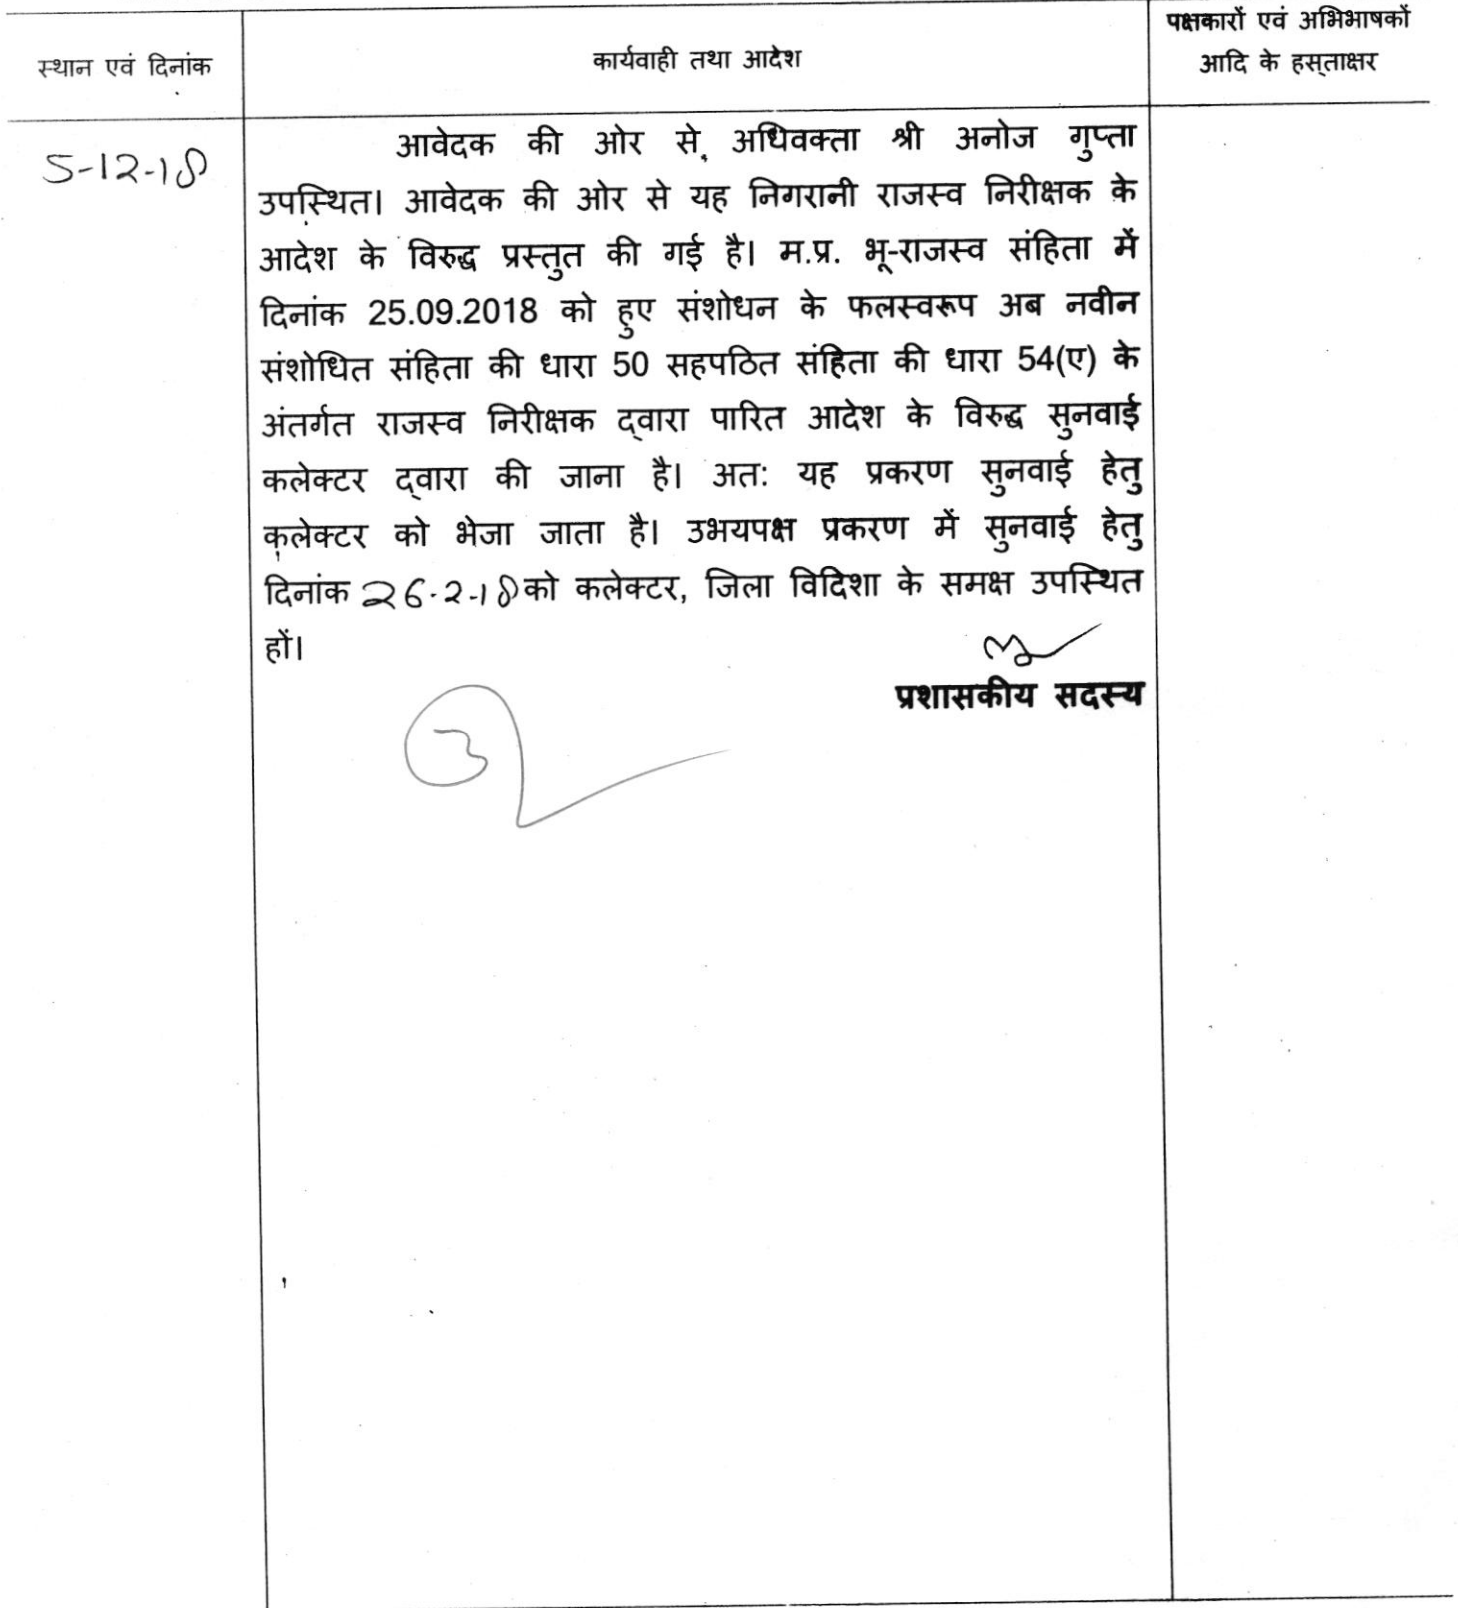 स्थान एवं दिनांक
कार्यवाही तथा आदेश
पक्षकारों एवं अभिभाषकों
आदि के हस्ताक्षर
5-12-18
आवेदक की ओर से, अधिवक्ता श्री अनोज गुप्ता
उपस्थित। आवेदक की ओर से यह निगरानी राजस्व निरीक्षक के
आदेश के विरुद्ध प्रस्तुत की गई है। म.प्र. भू-राजस्व संहिता में
दिनांक 25.09.2018 को हुए संशोधन के फलस्वरूप अब नवीन
संशोधित संहिता की धारा 50 सहपठित संहिता की धारा 54(ए) के
अंतर्गत राजस्व निरीक्षक द्वारा पारित आदेश के विरुद्ध सुनवाई
कलेक्टर द्वारा की जाना है। अत: यह प्रकरण सुनवाई हेतु
कलेक्टर को भेजा जाता है। उभयपक्ष प्रकरण में सुनवाई हेतु
दिनांक 26-2-18 को कलेक्टर, जिला विदिशा के समक्ष उपस्थित
हों।
प्रशासकीय सदस्य